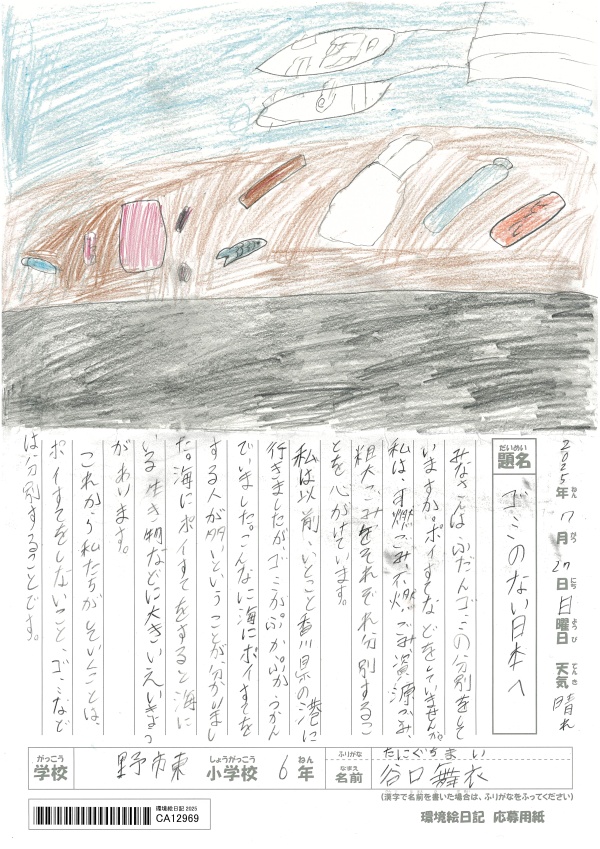 2025年ねん 7月がつ 27日にち 日曜日ようび 天気てんき 晴れ
題名だいめい ゴミのない日本へ
みなさんは、ふだんゴミの分別をして
いますか。ポイすてなどをしていませんか。
私は、可燃ごみ、不燃ごみ、資源ごみ、
粗大ごみをそれぞれ分別するこ
とを心がけています。
私は以前、いとこと香川県の港に
行きましたが、ゴミがぷかぷかうかん
でいました。こんなに海にポイすてを
する人が多いということが分かりまし
た。海にポイすてをすると海に
いる生き物などに大きいえいきょう
があります。
これから私たちがしていくことは、
ポイすてをしないこと、ゴミなど
は分別することです。
がっこう 学校 野市東 しょうがっこう 小学校 6 ねん 年
ふりがな たにぐち まい
なまえ 名前 谷口 舞衣
(漢字で名前を書いた場合は、ふりがなをふってください)
環境絵日記 2025
CA12969
環境絵日記 応募用紙